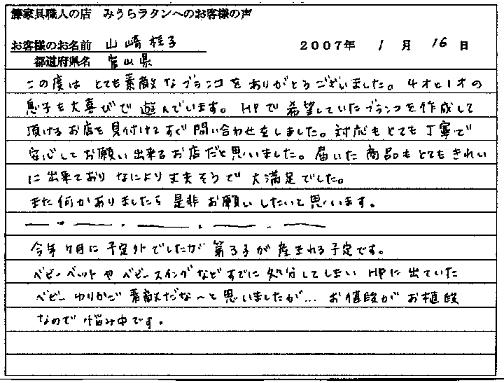 籐家具職人の店 みうらラタンへのお客様の声
お客様のお名前 山崎桂子 2007年 1月 16日
都道府県名 富山県
この度は とても素敵なブランコをありがとうございました。4才と1才の
息子も大喜びで 遊んでいます。HPで 希望していたブランコを作成して
頂けるお店を見付けてすぐ問い合わせをしました。対応もとても丁寧で
安心してお願い出来るお店だと思いました。届いた商品もとてもきれい
に出来ており なにより丈夫そうで 大満足でした。
また何かありましたら 是非お願いしたいと思います。
今年7月に予定外でしたが 第3子が産まれる予定です。
ベビーベットやベビースイングなどすでに処分してしまい HPに出ていた
ベビーゆりかご 素敵だな〜と思いましたが... お値段がお値段
なので 悩み中です。